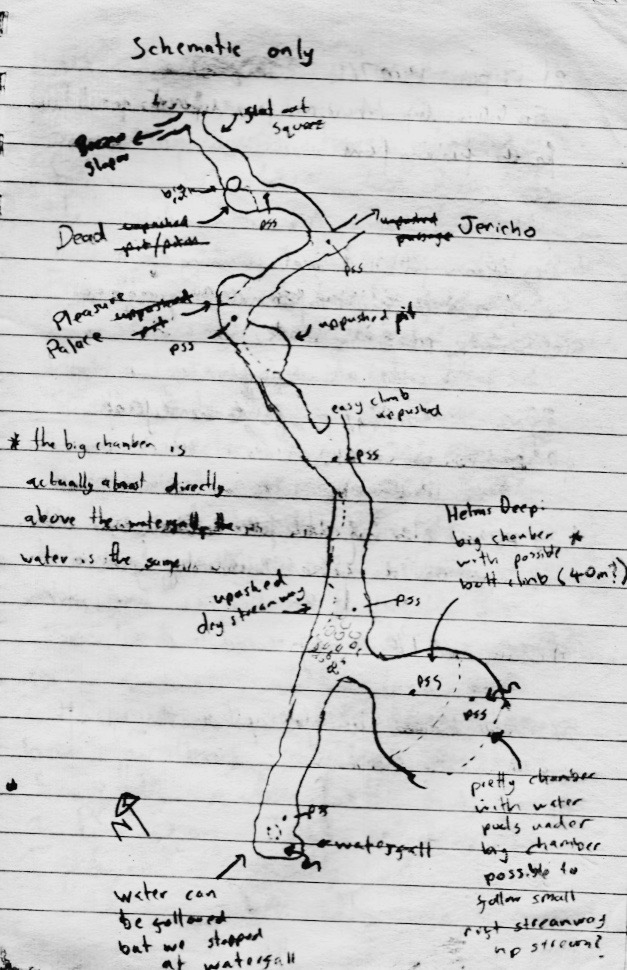 Schematic only
flat out
squeeze
big
Dead unpushed
pit/pitch
pss
unpushed
passage
Jericho
pss
Pleasure unpushed
Palace pit
pss
unpushed pit
easy climb
unpushed
pss
* the big chamber is
actually almost directly
above the waterfall, the
water is the same...
Helms Deep:
big chamber *
with possible
bolt climb (40m?)
unpushed
dry streamway
pss
pss
pss
pretty chamber
with water
pools under
big chamber
possible to
follow small
rift streamway
up stream?
pss
waterfall
N
water can
be followed
but we stopped
at waterfall